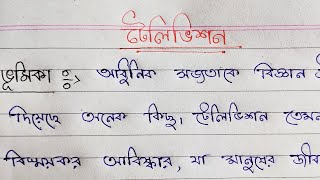 টেলিভিশন
ভূমিকা ঃ আধুনিক সভ্যতাকে বিজ্ঞান
দিয়েছে অনেক কিছু। টেলিভিশন তেমন
বিস্ময়কর আবিষ্কার, যা মানুষের জীব